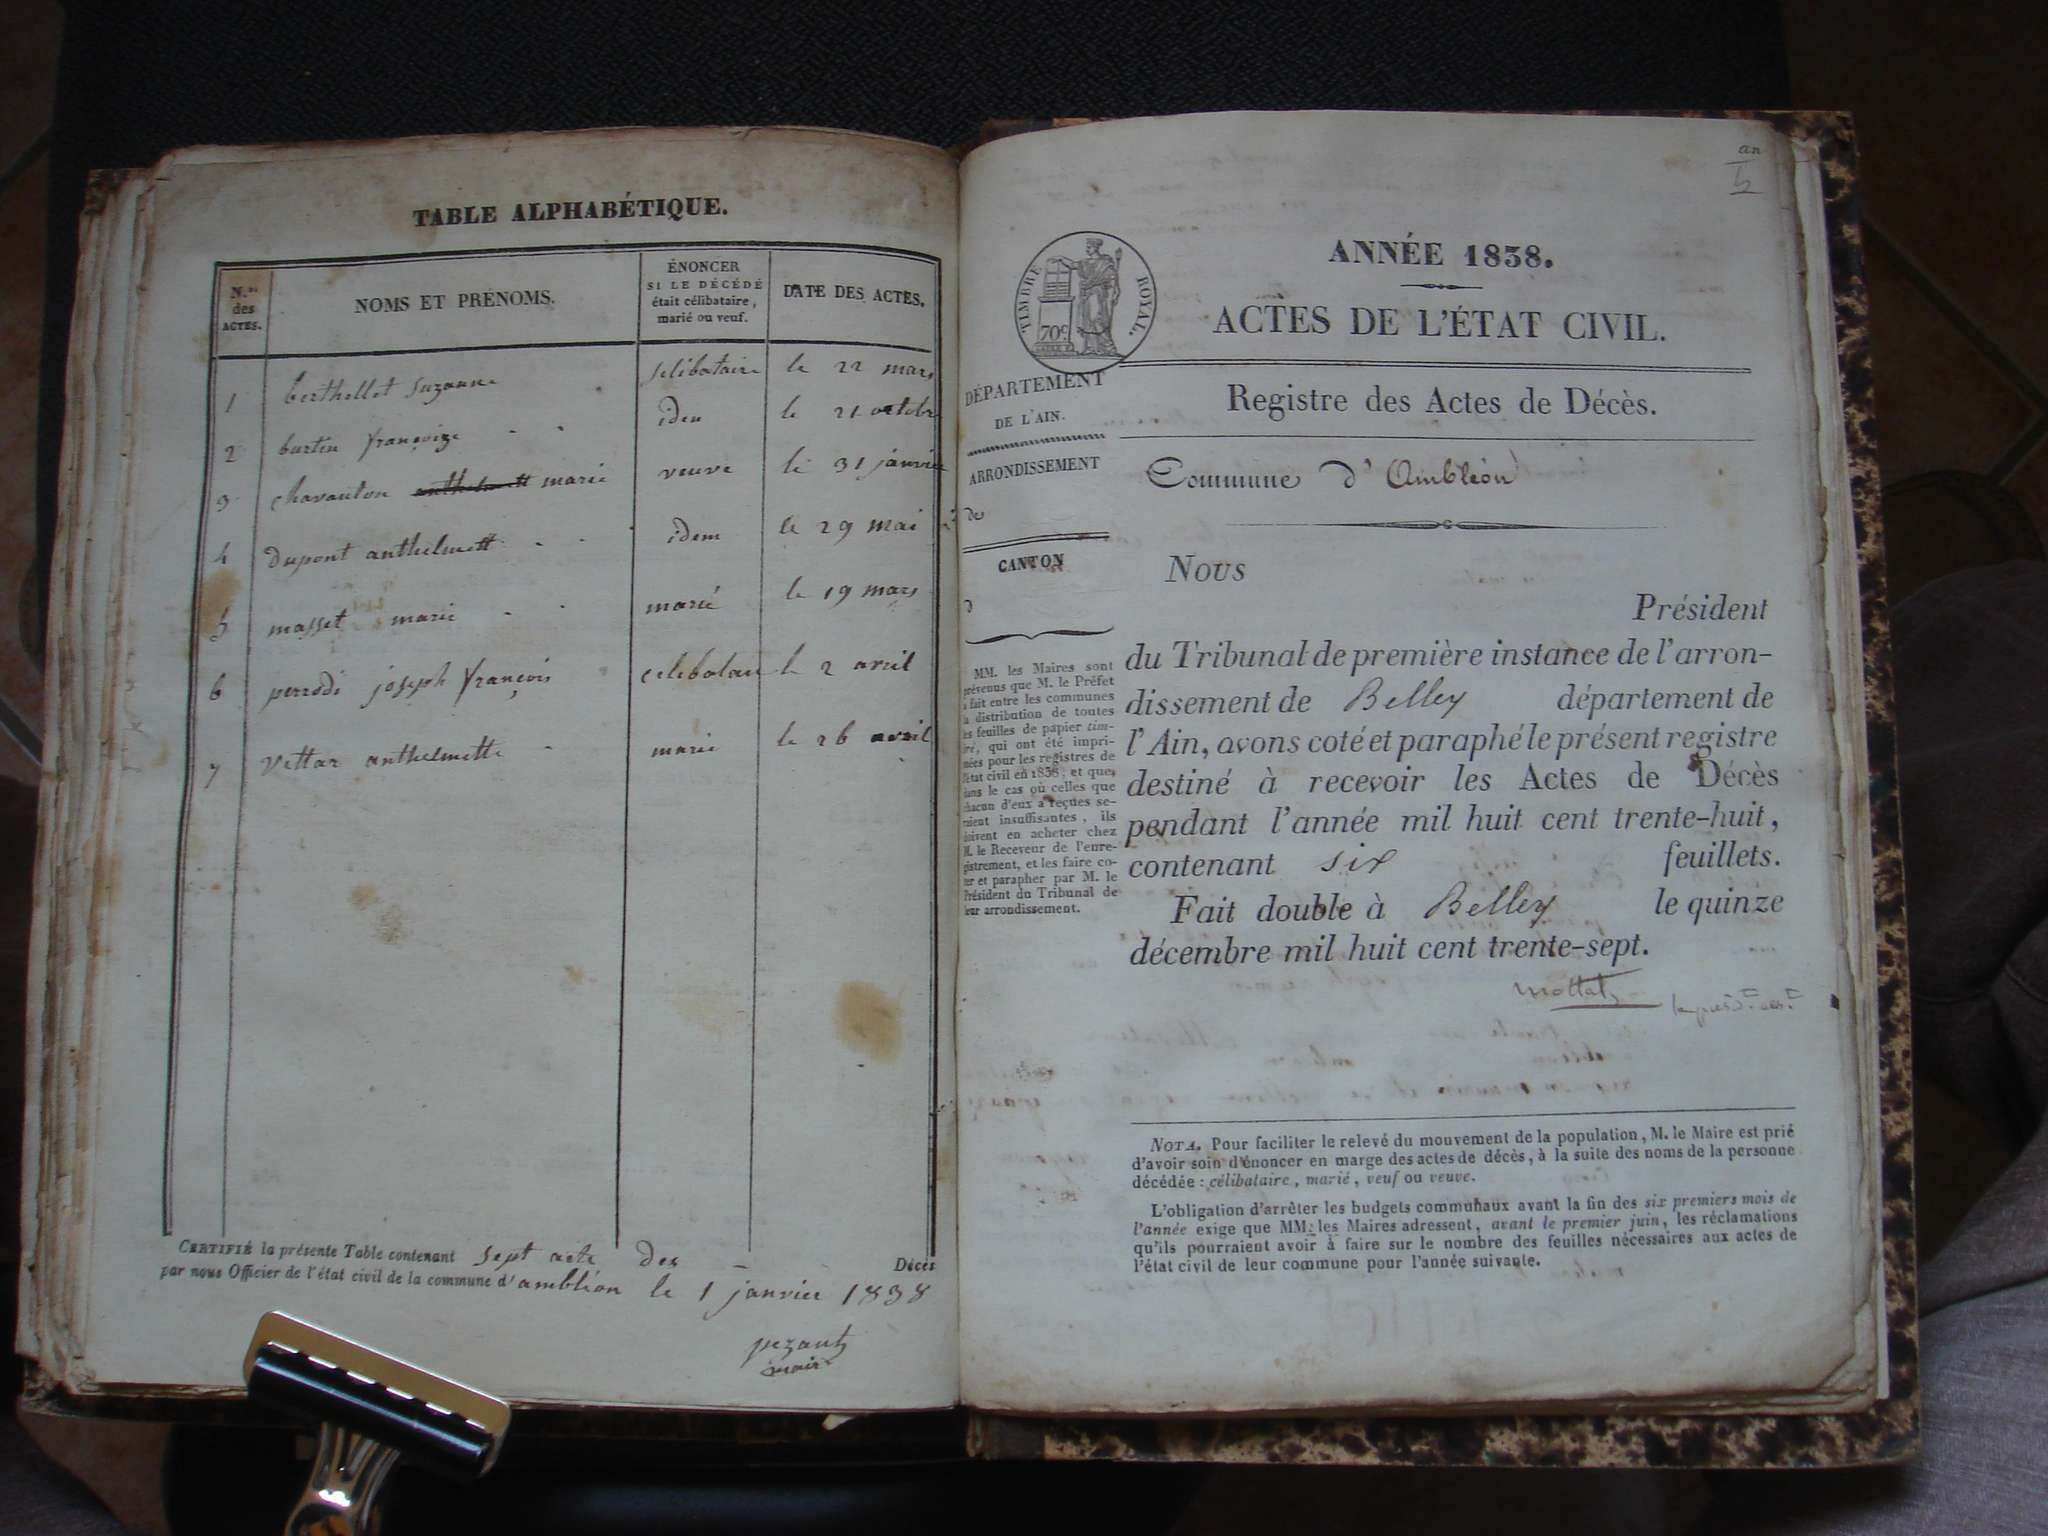 TABLE ALPHABÉTIQUE.
N.os des ACTES.
NOMS ET PRÉNOMS.
ÉNONCER SI LE DÉCÉDÉ était célibataire, marié ou veuf.
DATE DES ACTES.
1 berthellet suzanne selibataire le 22 mars
2 burtin françoize iden le 21 octobre
3 chavanton anthelmett marie veuve le 31 janvier
4 dupont anthelmett idem le 29 mai
5 masset marie marié le 19 mars
6 perrodi joseph françois celibatair le 2 avril
7 vettar anthelmette marie le 26 avril
CERTIFIÉ la présente Table contenant sept acte des Décès
par nous Officier de l'état civil de la commune d'amblion le 1 janvier 1838
pezant
mair
an
TIMBRE ROYAL.
70c
ANNÉE 1838.
ACTES DE L'ÉTAT CIVIL.
DÉPARTEMENT
DE L'AIN.
ARRONDISSEMENT
de
CANTON
d
MM. les Maires sont
prévenus que M. le Préfet
a fait entre les communes
la distribution de toutes
les feuilles de papier tim-
bré, qui ont été impri-
mées pour les registres de
l'état civil en 1838; et que,
dans le cas où celles que
chacun d'eux a reçues se-
raient insuffisantes, ils
doivent en acheter chez
M. le Receveur de l'enre-
gistrement, et les faire co-
ter et parapher par M. le
Président du Tribunal de
leur arrondissement.
Registre des Actes de Décès.
Commune d'Ambléon
NOUS
Président
du Tribunal de première instance de l'arron-
dissement de Belley département de
l'Ain, avons coté et paraphé le présent registre
destiné à recevoir les Actes de Décès
pendant l'année mil huit cent trente-huit,
contenant six feuillets.
Fait double à Belley le quinze
décembre mil huit cent trente-sept.
NOTA. Pour faciliter le relevé du mouvement de la population, M. le Maire est prié
d'avoir soin d'énoncer en marge des actes de décès, à la suite des noms de la personne
décédée : célibataire, marié, veuf ou veuve.
L'obligation d'arrêter les budgets communaux avant la fin des six premiers mois de
l'année exige que MM. les Maires adressent, avant le premier juin, les réclamations
qu'ils pourraient avoir à faire sur le nombre des feuilles nécessaires aux actes de
l'état civil de leur commune pour l'année suivante.